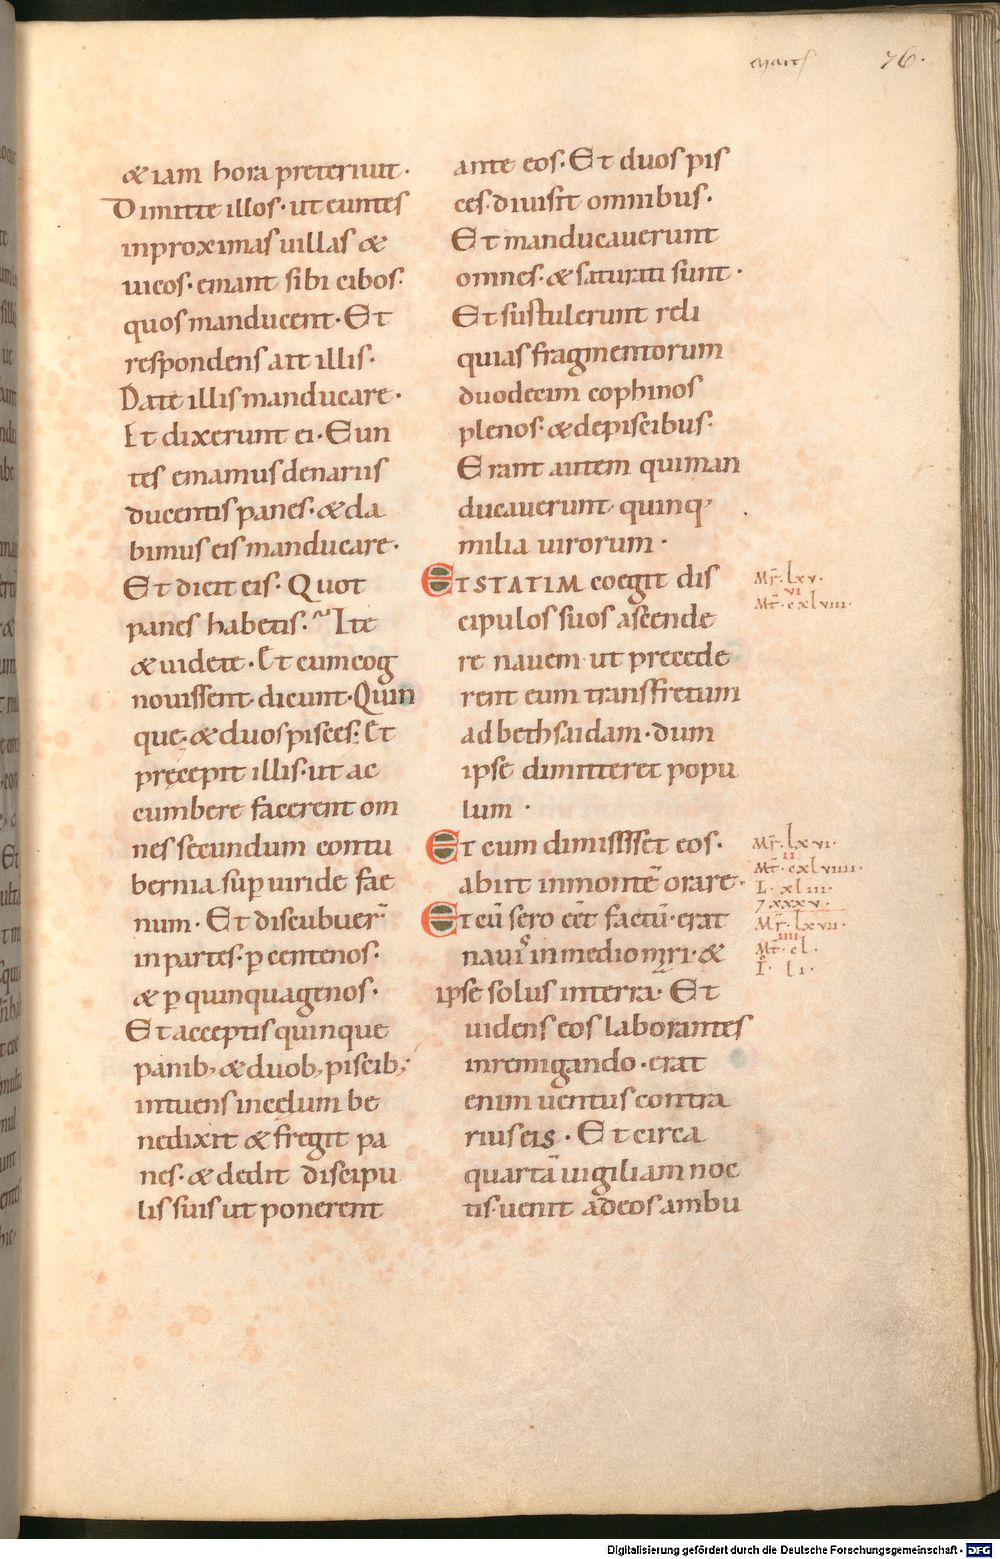 Marcs 76.
& iam hora preteriuit·
Dimitte illos· ut euntes
in proximas uillas &
uicos· emant sibi cibos·
quos manducent· Et
respondens ait illis·
Date illis manducare·
Et dixerunt ei· Eun
tes emamus denariis
ducentis panes· & da
bimus eis manducare·
Et dicit eis· Quot
panes habetis· Ite
& uidete· Et cum cog
nouissent· dicunt· Quin
que· & duos pisces· Et
pręcepit illis· ut ac
cumbere facerent om
nes secundum contu
bernia sup̱ uiride fae
num· Et discubuer̄
in partes· ꝑ centenos·
& ꝑ quinquagenos·
Et acceptis quinque
panib; & duob; piscib;
intuens in cęlum be
nedixit & fregit pa
nes· & dedit discipu
lis suis ut ponerent
ante eos· Et duos pis
ces· diuisit omnibus·
Et manducauerunt
omnes· & saturati sunt·
Et sustulerunt reli
quias fragmentorum
duodecim cophinos
plenos· & de piscibus·
Erant autem qui man
ducauerunt· quinq;
milia uirorum·
ET STATIM coegit dis
cipulos suos ascende
re nauem· ut precede
rent eum trans fretum
ad bethsaidam· dum
ipse dimitteret popu
lum·
Et cum dimisisset eos·
abiit in montē orare·
Et cū sero eēt factū· erat
nauis in medio mari· &
ipse solus in terra· Et
uidens eos laborantes
in remigando· erat
enim uentus contra
rius eis· Et circa
quartā uigiliam noc
tis· uenit ad eos ambu
Mr̄· lxv·
vi
Mt̄· cxlviii·
Mr̄· lxvi·
ii
Mt̄· cxlviiii·
L· xliii·
7 xxxv·
Mr̄· lxvii·
iiii
Mt̄· cl·
I· li·
Digitalisierung gefördert durch die Deutsche Forschungsgemeinschaft - DFG